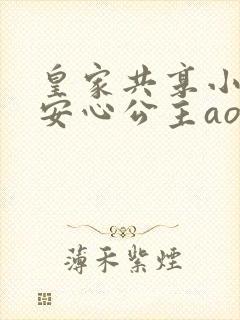 皇家共享小
安心公主ao
薄禾紫煙